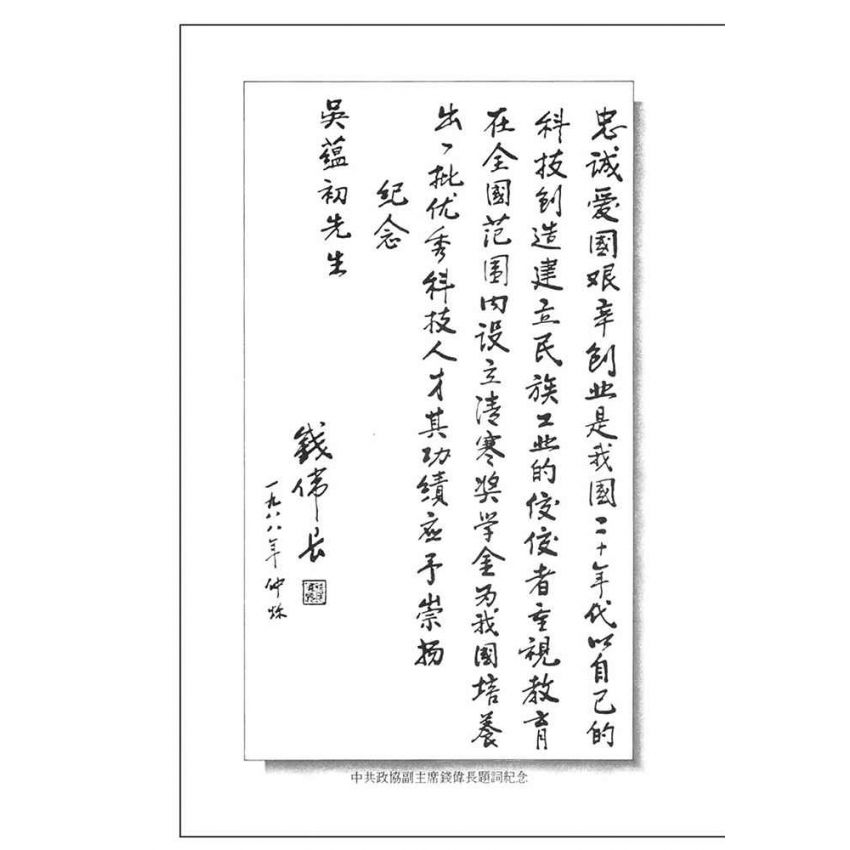 忠诚爱國艰辛创业是我國二十年代以自己的
科技创造建立民族工业的佼佼者重視教育
在全國范围内设立清寒奖学金为我國培養
出一批优秀科技人才其功績应予崇扬
纪念
吳蕴初先生
錢偉長
一九八八年仲秌
中共政協副主席錢偉長題詞紀念